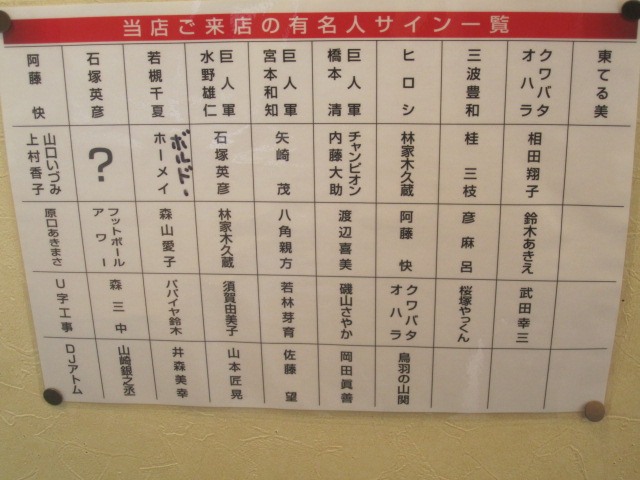 当店ご来店の有名人サイン一覧
東てる美
クワバタ
オハラ
三波豊和
ヒロシ
巨人軍
橋本清
巨人軍
宮本和知
巨人軍
水野雄仁
若槻千夏
石塚英彦
阿藤快
相田翔子
桂三枝
林家木久蔵
チャンピオン
内藤大助
矢崎茂
石塚英彦
ボルドー
ホーメイ
?
山口いづみ
上村香子
鈴木あきえ
彦麻呂
阿藤快
渡辺喜美
八角親方
林家木久蔵
森山愛子
フットボール
アワー
原口あきまさ
武田幸三
桜塚やっくん
クワバタ
オハラ
磯山さやか
若林芽育
須賀由美子
パパイヤ鈴木
森三中
U字工事
鳥羽の山関
岡田眞善
佐藤望
山本匠晃
井森美幸
山崎銀之丞
DJアトム